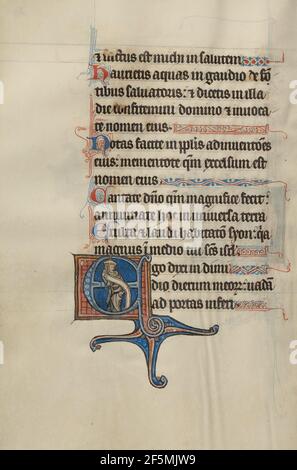 & factus est michi in salutem
Haurietis aquas in gaudio de fon
tibus saluatoris: & dicetis in illa
die confitemini domino & inuoca
te nomen eius.
Notas facite in pplis adinuentões
eius: mementote qm excelsum est
nomen eius
Cantate dño qm magnifice fecit:
annunciate hoc in uniuersa terra
Exulta & lauda habitatõ syon: qa
magnus in medio tui scs isrl
Ego dixi in dimi
dio dierum meorz: uadam
ad portas inferi
alamy
Image ID: 2F5MJW9
www.alamy.com